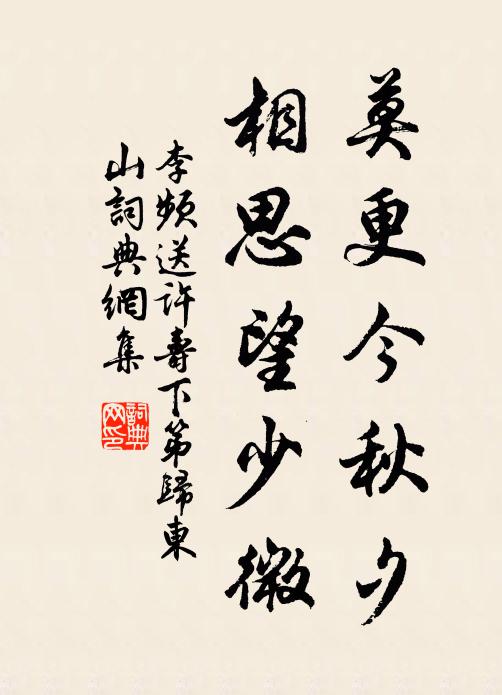 莫更今秋夕
相思望少微
李频送许寿下第歸東
山詞典網集
詞典
网印